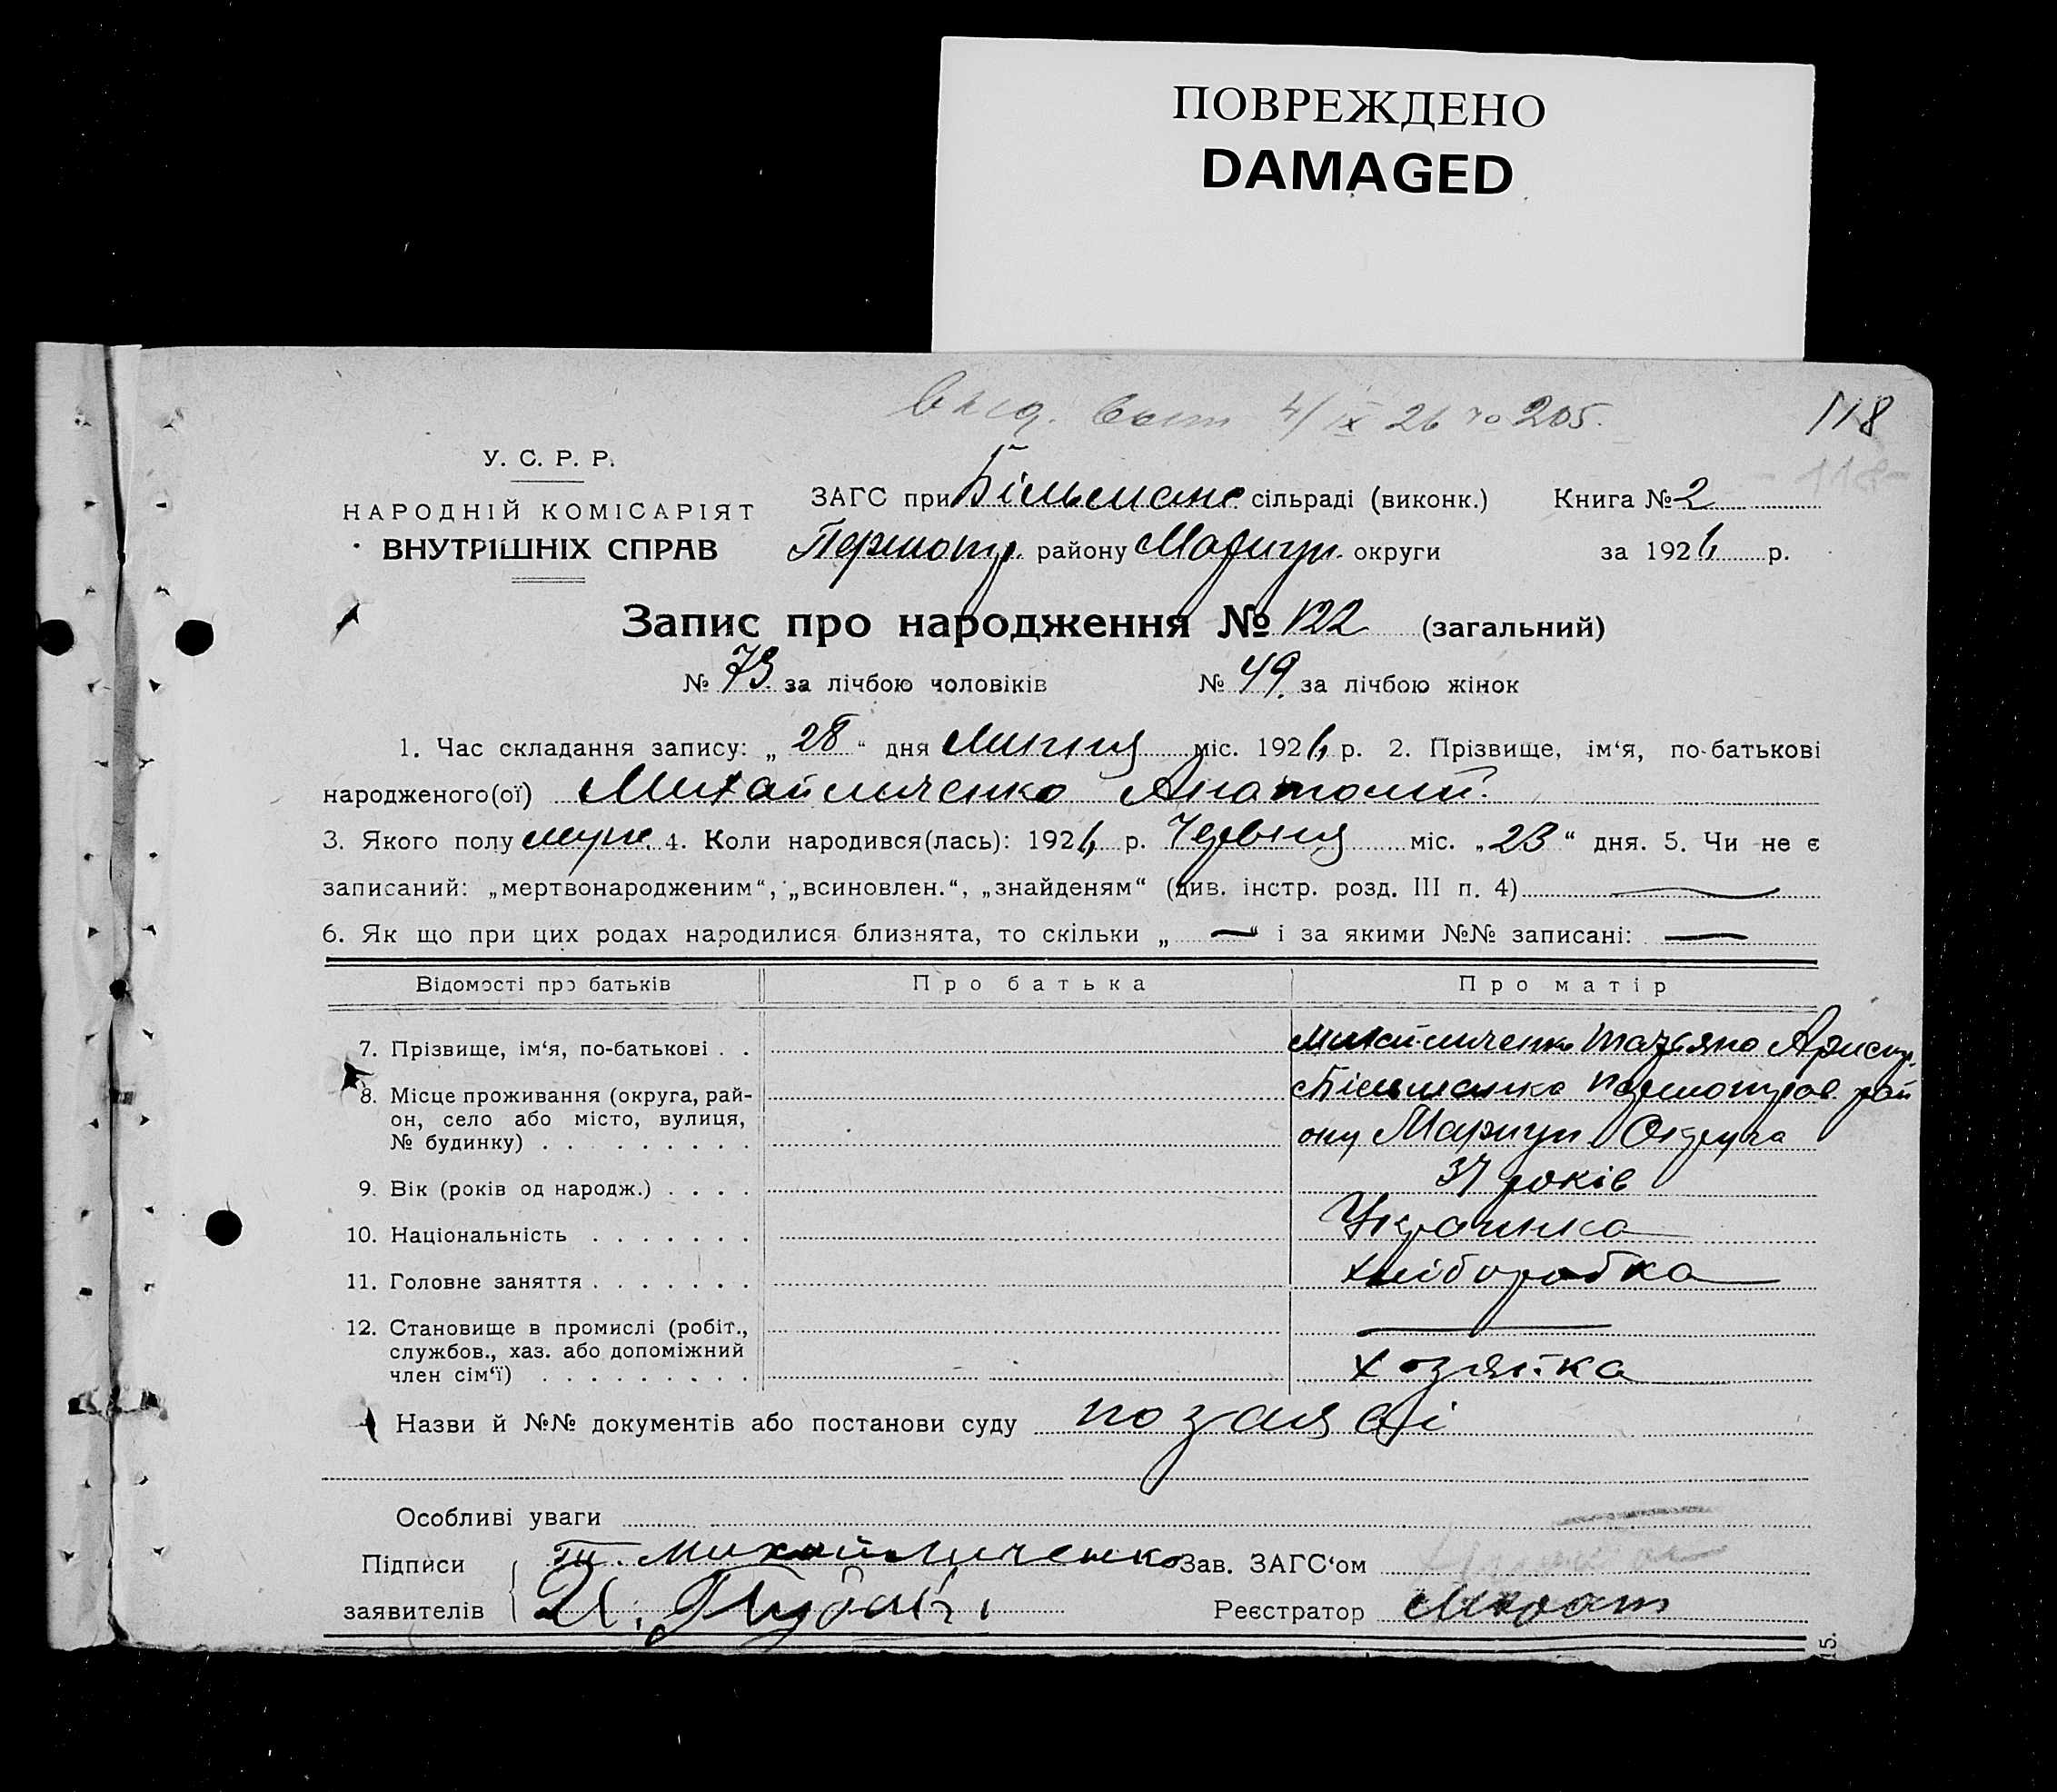 ПОВРЕЖДЕНО
DAMAGED
4/IX 26 № 205.
118
- 118 -
У. С. Р. Р.
НАРОДНІЙ КОМІСАРІЯТ
ВНУТРІШНІХ СПРАВ
ЗАГС при Більманс. сільраді (виконк.) Книга № 2
Першотр. району Маріуп. округи за 1926 р.
Запис про народження № 122 (загальний)
№ 73 за лічбою чоловіків № 49 за лічбою жінок
1. Час складання запису: „ 28 “ дня Липня міс. 1926 р. 2. Прізвище, ім‘я, по-батькові
народженого(ої) Михайличенко Анатолий
3. Якого полу муж. 4. Коли народився(лась): 1926 р. Червня міс. „ 23 “ дня. 5. Чи не є
записаний: „мертвонародженим“, „всиновлен.“, „знайденям“ (див. інстр. розд. III п. 4)
6. Як що при цих родах народилися близнята, то скільки „ — “ і за якими №№ записані: —
Відомості про батьків Про батька Про матір
7. Прізвище, ім‘я, по-батькові . . Михайличенко Татьяна
8. Місце проживання (округа, рай- Більманка Першотров. рай
он, село або місто, вулиця,
№ будинку) . . . . . . . . . ону Маріуп. Округа
9. Вік (років од народж.) . . . . 37 років
10. Національність . . . . . . . Украинка
11. Головне заняття . . . . . . . хліборобка
12. Становище в промислі (робіт.,
службов., хаз. або допоміжний
член сім‘ї) . . . . . . . . . хозяйка
Назви й №№ документів або постанови суду по заяві
Особливі уваги
Підписи Т. Михайличенко Зав. ЗАГС‘ом
заявителів И. Реєстратор
15.